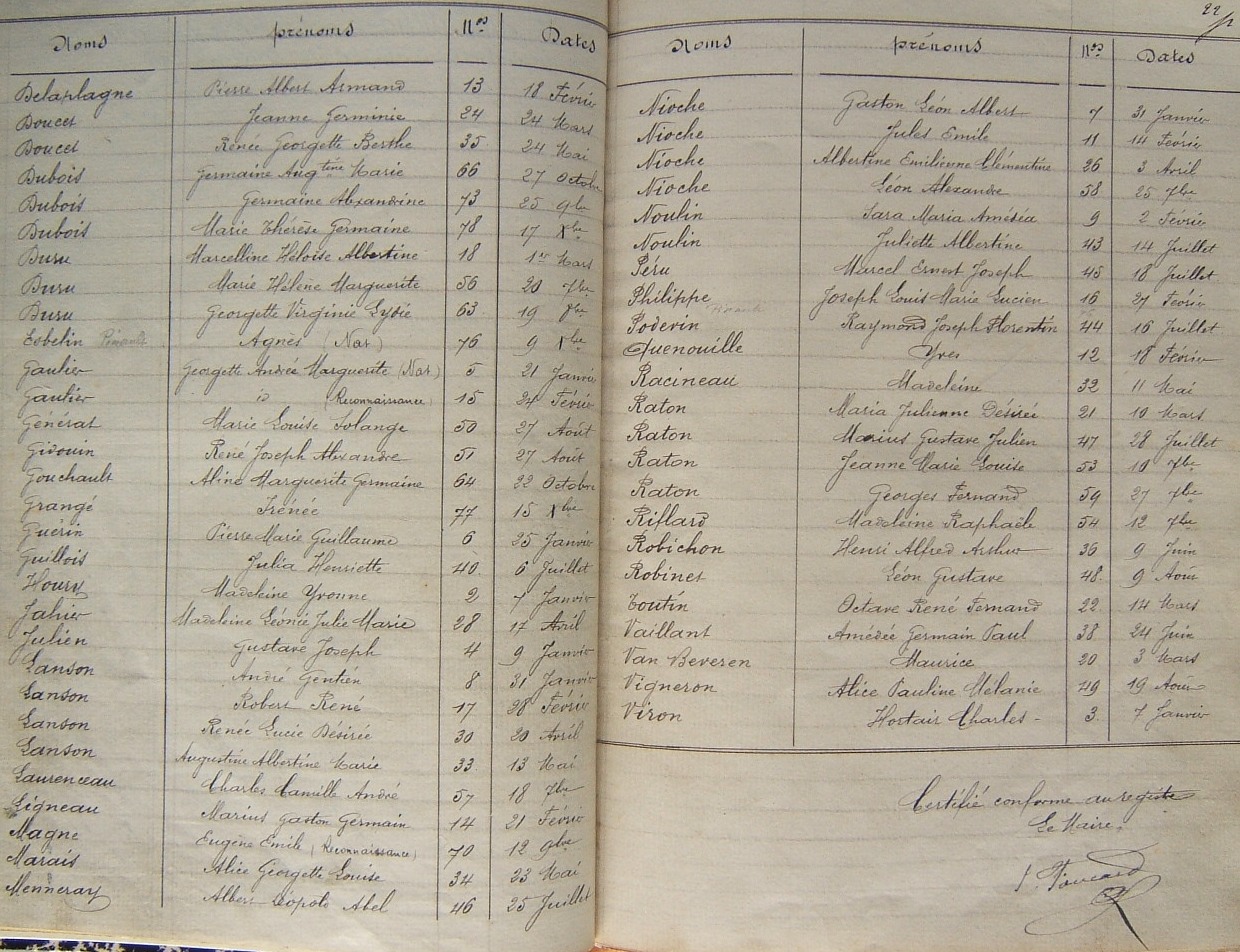 Noms prénoms Nos Dates
Delaplagne Pierre Albert Armand 13 18 Févrie
Doucet Jeanne Germinie 24 24 Mars
Doucet Renée Georgette Berthe 35 24 Mai
Dubois Germaine Augtine Marie 66 27 Octobr
Dubois Germaine Alexandrine 73 25 9bre
Dubois Marie Thérèse Germaine 78 17 Xbre
Buru Marcelline Héloïse Albertine 18 1er Mars
Buru Marie Hélène Marguerite 56 20 7bre
Buru Georgette Virginie Lydie 63 19
Esbelin Agnès (Nat.) 76 9 Xbre
Gaulier Georgette Andrée Marguerite (Nat.) 5 21 Janvie
Gaulier id (Reconnaissance) 15 24 Févrie
Générat Marie Louise Solange 50 27 Août
Gidouin René Joseph Alexandre 51 27 Août
Gouchault Aline Marguerite Germaine 64 22 Octobre
Grangé Irénée 77 15 Xbre
Guérin Pierre Marie Guillaume 6 25 Janvier
Guillois Julia Henriette 40. 6 Juillet
Houry Madeleine Yvonne 2 7 Janvier
Jahier Madeleine Léonice Julie Marie 28 17 Avril
Julien Gustave Joseph 4 9 Janvier
Lanson André Gentien 8 31 Janvier
Lanson Robert René 17 28 Févrie
Lanson Renée Lucie Désirée 30 20 Avril
Lanson Augustine Albertine Marie 33 13 Mai
Laurenceau Charles Camille André 57 18 7bre
Ligneau Marius Gaston Germain 14 21 Févrie
Magne Eugène Emile (Reconnaissance) 70 12 9bre
Marais Alice Georgette Louise 34 23 Mai
Menneray Albert Léopold Abel 46 25 Juillet
22
Noms prénoms Nos Dates
Nioche Gaston Léon Albert 7 31 Janvier
Nioche Jules Emile 11 14 Févrie
Nioche Albertine Emilienne Clémentine 26 3 Avril
Nioche Léon Alexandre 58 25 7bre
Noulin Sara Maria Amédéa 9 2 Févrie
Noulin Juliette Albertine 43 14 Juillet
Péru Marcel Ernest Joseph 45 18 Juillet
Philippe Joseph Louis Marie Lucien 16 27 Févrie
Poderin Raymond Joseph Florentin 44 16 Juillet
Quenouille Yves 12 18 Févrie
Racineau Madeleine 32 11 Mai
Raton Maria Julienne Désirée 21 10 Mars
Raton Marius Gustave Julien 47 28 Juillet
Raton Jeanne Marie Louise 53 10 7bre
Raton Georges Fernand 59 27 7bre
Riflard Madeleine Raphaële 54 12 7bre
Robichon Henri Alfred Arthur 36 9 Juin
Robinet Léon Gustave 48. 9 Août
Toutin Octave René Fernand 22 14 Mars
Vaillant Amédée Germain Paul 38 24 Juin
Van Beveren Maurice 20 3 Mars
Vigneron Alice Pauline Mélanie 49 19 Août
Viron Hostair Charles - 3. 7 Janvier
Certifié conforme au registre
Le Maire.